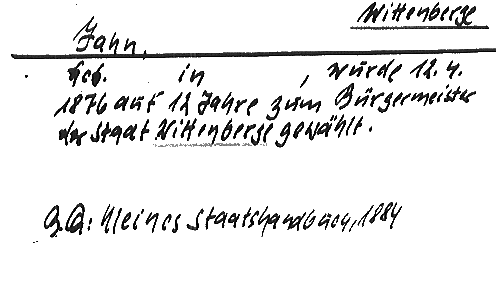 Wittenberge
Jahn,
geb. in , wurde 12.4.
1876 auf 12 Jahre zum Bürgermeister
der Stadt Wittenberge gewählt.
Q.Q.: Kleines Staatshandbuch, 1884